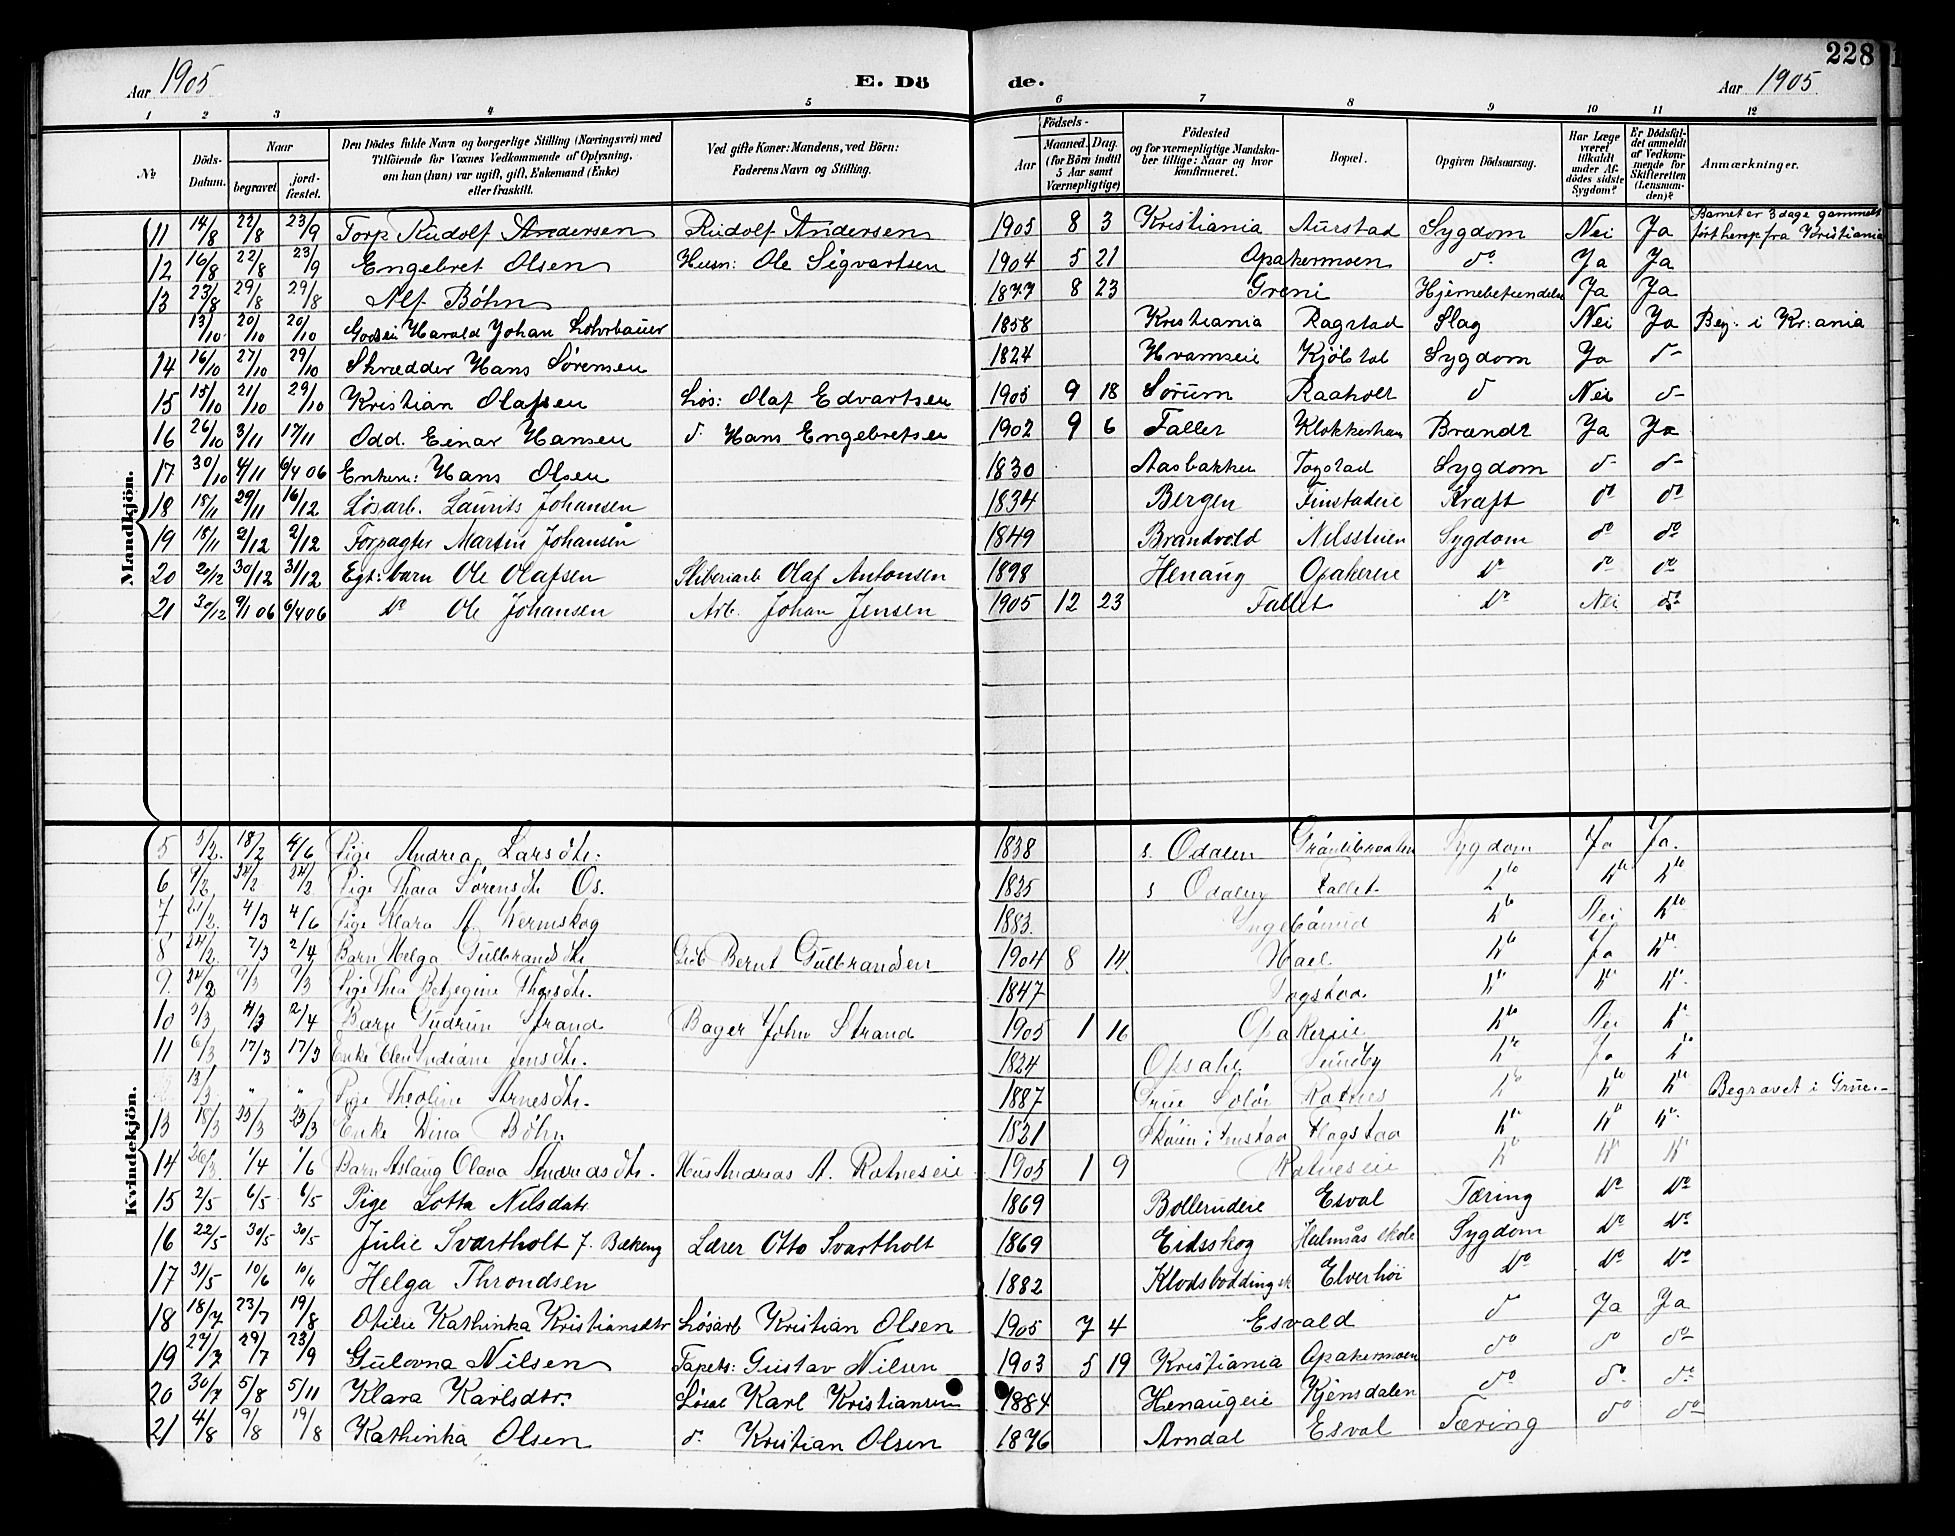 228
Aar 1905 E. Dö de. Aar 1905
1 2 3 4 5 6 7 8 9 10 11 12
№ Döds-Datum. Naar begravet jordfæstet. Den Dödes fulde Navn og borgerlige Stilling (Næringsvei) med Tilföiende for Voxnes Vedkommende af Oplysning, om han (hun) var ugift, gift, Enkemand (Enke) eller fraskilt. Ved gifte Koner: Mandens, ved Börn: Faderens Navn og Stilling. Födsels- Aar Maaned. Dag. (for Börn indtil 5 Aar samt Værnepligtige) Födested og for værnepligtige Mandskaber tillige: Naar og hvor konfirmeret. Bopæl. Opgiven Dödsaarsag. Har Læge været tilkaldt under Afdödes sidste Sygdom? Er Dödsfaldet anmeldt af Vedkommende for Skifteretten (Lensmanden)? Anmærkninger.
Mandkjön.
11 14/8 22/8 23/9 Torp Rudolf Andersen Rudolf Andersen 1905 8 3 Kristiania Aurstad Sygdom Nei Ja Barnet er 3 dage gammelt ført herop fra Kristiania
12 16/8 22/8 23/9 Engebret Olsen Husm: Ole Sigvartsen 1904 5 21 Opakermoen do Ja Ja
13 23/8 29/8 29/8 Alf Bøhn 1877 8 23 Greni Hjernebetændelse Ja Ja
13/10 20/10 20/10 Godsei Harald Johan Lohrbauer 1858 Kristiania Ragstad Slag Nei Ja Beg: i Kr:ania
14 16/10 27/10 29/10 Skrædder Hans Sørensen 1824 Hvamseie Kjölstad Sygdom Ja d-
15 15/10 21/10 29/10 Kristian Olafsen Løs: Olaf Edvartsen 1905 9 18 Sørum Raaholt d Nei d-
16 26/10 3/11 17/11 Odd. Einar Hansen d. Hans Engebretsen 1902 9 6 Fallet Klokkerhau Brændt Ja Ja
17 30/10 4/11 6/4 06 Enkem: Hans Olsen 1830 Aasbakken Togstad Sygdom d- d-
18 15/11 29/11 16/12 Løsarb. Laurits Johansen 1834 Bergen Finstadeie Kræft do do
19 18/11 2/12 2/12 Forpagter Martin Johansen 1849 Brandvold Nilsstuen Sygdom do do
20 20/12 30/12 31/12 Egt: barn Ole Olafsen Sliberiarb Olaf Antonsen 1898 Henaug Opakereie do do do
21 30/12 9/1 06 6/4 06 do Ole Johansen Arb. Johan Jensen 1905 12 23 Fallet do Nei do
Kvindekjön.
5 5/2 18/2 4/6 Pige Andrea Larsdtr: 1838 s. Odalen Sygdom Ja Ja.
6 9/2 24/2 24/2 Pige Thea Sørensdtr Os. 1835 s Odalen Fallet do do do
7 21/2 4/3 4/6 Pige Klara A. Wermskog 1883 do Nei do
8 24/2 7/3 2/4 Barn Helga Gulbrandsdtr Bernt Gulbrandsen 1904 8 14. Hael. do Ja do
9. 24/2 9/3 9/3 Pige Thea 1847 Togstad do do do
10 3/3 4/3 2/4 Barn Gudrun Strand Bager John Strand 1905 1 16 Opakereie do Nei do
11 6/3 17/3 17/3 Enke Jensdtr. 1824 Opsahl Sundby do Ja do
13/3 " " Pige Theoline Arnesdtr. 1887 Grue Solør Ratnes do do do Begravet i Grue.-
13 18/3 25/3 25/3 Enke Dina Bøhn 1821 Togstad do do do
14 26/3 1/4 1/6 Barn Aslaug Olava Andreasdtr. Hus Andreas A. Ratneseie 1905 1 9 Ratneseie do do do
15 2/5 6/5 6/5 Pige Lotta Nilsdatr 1869 Bollerudeie Esval Tæring do do
16 22/5 30/5 30/5 Julie Svartholt f. Bækeng Lærer Otto Svartholt 1869 Eidsskog Holmsås skole Sygdom do do
17 31/5 10/6 10/6 Helga Throndsen 1882 Klodsbødding sk Elverhöi do do do
18 18/7 23/7 19/8 Otilie Kathinka Kristiansdtr Løsarb Kristian Olsen 1905 7 4 Esvald d Ja Ja
19 27/7 29/7 23/9 Gulovna Nilsen Tapets: Gustav Nilsen 1903 5 19 Kristiania Opakermoen do do do
20 30/7 5/8 5/11 Klara Karlsdtr. Løsar Karl Kristiansen 1884 Henaugeie Kjensdalen do do do
21 4/8 9/8 19/8 Kathinka Olsen d. Kristian Olsen 1876 Arndal Esval Tæring do do